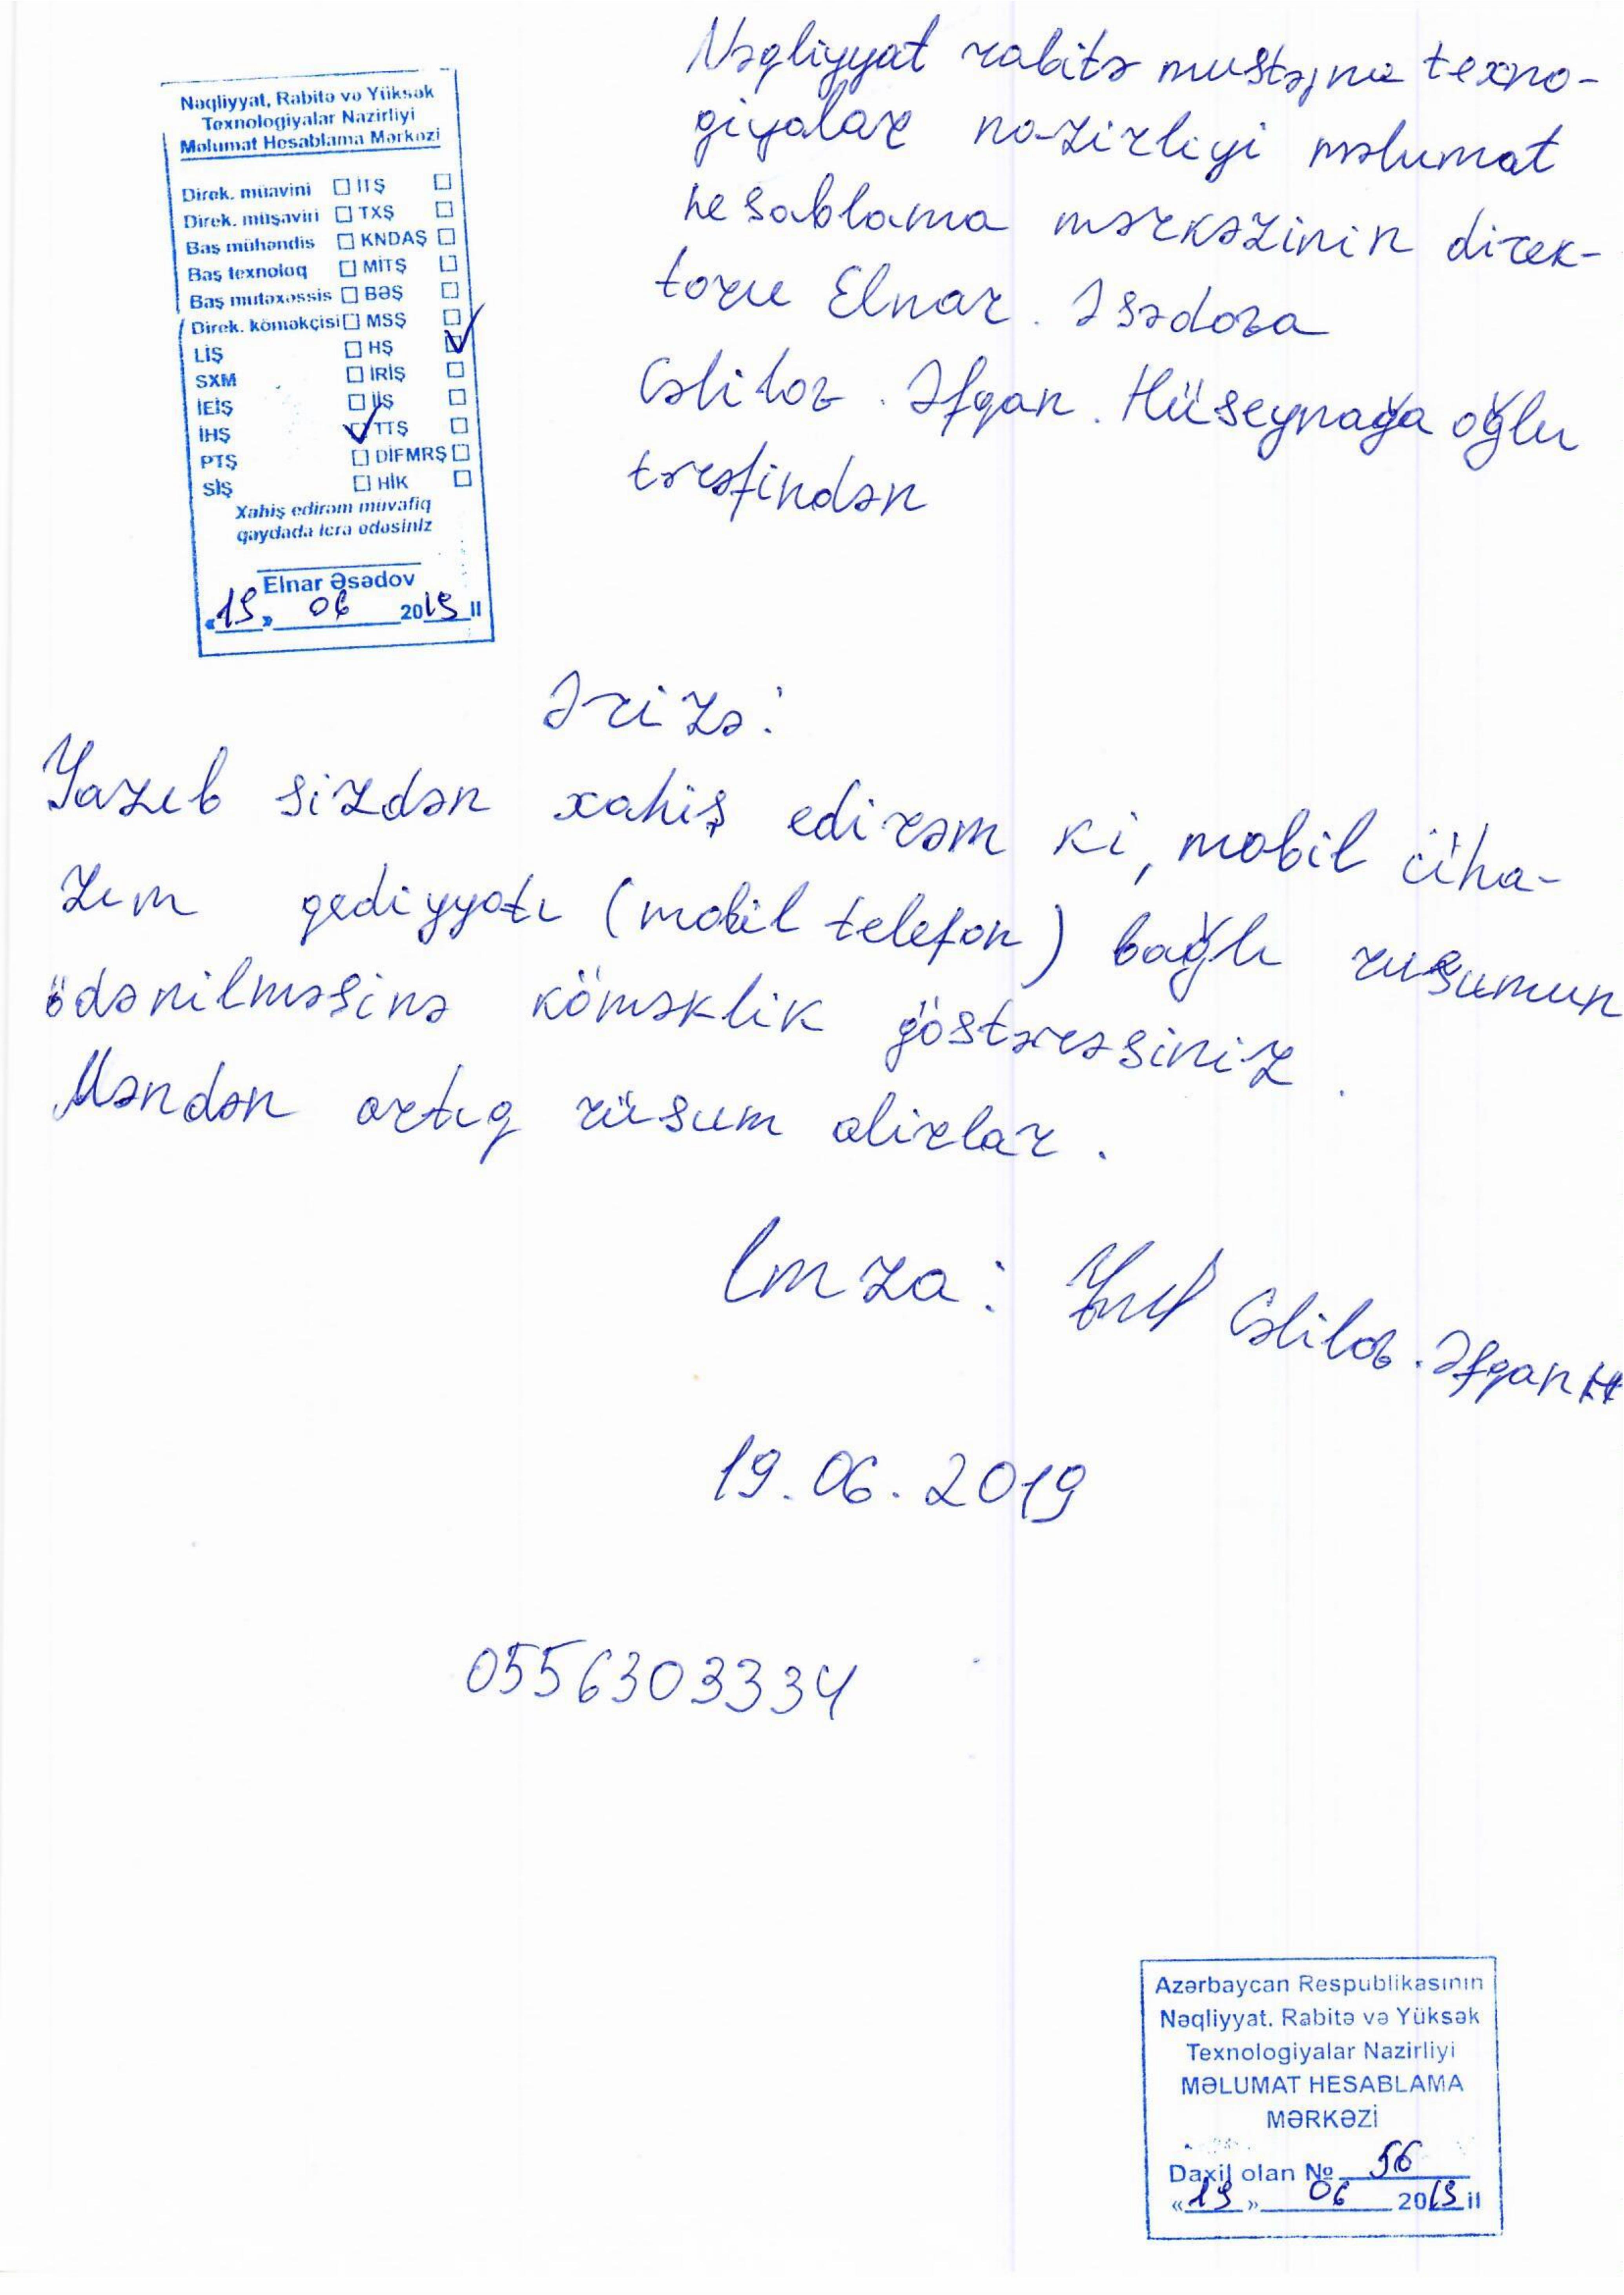 Nəqliyyat, Rabitə və Yüksək
Texnologiyalar Nazirliyi
Məlumat Hesablama Mərkəzi
Direk. müavini □ İTŞ □
Direk. müşaviri □ TXŞ □
Baş mühəndis □ KNDAŞ □
Baş texnoloq □ MİTŞ □
Baş mütəxəssis □ BƏŞ □
Direk. köməkçisi □ MSŞ □
LİŞ □ HŞ ☑
SXM □ İRİŞ □
İEİŞ □ İİŞ □
İHŞ ☑ TTŞ □
PTŞ □ DİFMRŞ □
SİŞ □ HİK □
Xahiş edirəm müvafiq
qaydada icra edəsiniz
Elnar Əsədov
«19» 06 2019 il
Nəqliyyat rabitə texno-
giyalar nazirliyi məlumat
hesablama mərkəzinin direk-
toru Elnar. Əsədova
Cəlilov. Əfqan. Hüseynağa oğlu
tərəfindən
Ərizə:
Yazıb sizdən xahiş edirəm ki, mobil ciha-
zım qediyyatı (mobil telefon) bağlı rusumun
ödənilməsinə köməklik göstərəsiniz.
Məndən artıq rüsum alirlar.
Imza: Cəlilov. Əfqan H
19.06.2019
0556303334
Azərbaycan Respublikasının
Nəqliyyat, Rabitə və Yüksək
Texnologiyalar Nazirliyi
MƏLUMAT HESABLAMA
MƏRKƏZİ
Daxil olan № 56
«19» 06 2019 il